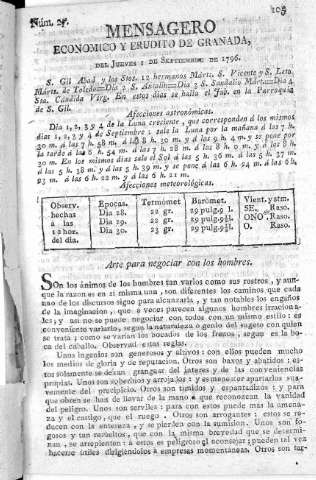 Núm. 27.
105
MENSAGERO
ECONOMICO Y ERUDITO DE GRANADA,
DEL JUEVES 1 DE SEPTIEMBRE DE 1796.
S. Gil Abad y los Stos. 12 hermanos Márts. S. Vicente y S. Leto
Márts. de Toledo=Dia 2 S. Antolin=Dia 3 S. Sandalio Márt.=Dia 4
Sta. Cándida Virg. En estos dias se halla el Jub. en la Parroquia
de S. Gil.
Afecciones astronómicas.
Dia 1, 2, 3 y 4 de la Luna creciente, que corresponden á los mismos
dias 1, 2, 3 y 4 de Septiembre: sale la Luna por la mañana á las 7 h.
30 m. á las 7 h. 58 m. á las 8 h. 30 m. y á las 9 h. 4 m. y se pone por
la tarde á las 6 h. 54 m. á las 7 h. 28 m. á las 8 h. 0 m. y á las 8 h.
30 m. En los mismos dias sale el Sol á las 5 h. 36 m. á las 5 h. 37 m.
á las 5 h. 38 m. y á las 5 h. 39 m. y se pone á las 6 h. 24 m. á las 6 h.
23 m. á las 6 h. 22 m. y á las 6 h. 21 m.
Afecciones meteorológicas.
Observ. hechas á las 12 hor. del dia.
Epocas. Termómet Barómet. Vient. y atm.
Dia 28. 22 gr. 29 pulg. 9 l. SE. Raso.
Dia 29. 22 gr. 29 pulg. 9½l. ONO. Raso.
Dia 30. 23 gr. 29 pulg. 9½l. O. Raso.
Arte para negociar con los hombres.
SOn los ánimos de los hombres tan varios como sus rostros, y aun-
que la razon es en sí misma una, son diferentes los caminos que cada
uno de los discursos sigue para alcanzarla, y tan notables los engaños
de la imaginacion, que á veces parecen algunos hombres irraciona-
les; y así no se puede negociar con todos con un mismo estilo: es
conveniente variarlo, segun la naturaleza ó genio del sugeto con quien
se trata; como se varian los bocados de los frenos, segun es la bo-
ca del caballo. Observad estas reglas.
Unos ingenios son generosos y altivos: con ellos pueden mucho
los medios de gloria y de reputacion. Otros son baxos y abatidos; es-
tos solamente se dexan grangear del interes y de las conveniencias
propias. Unos son soberbios y arrojados; y es menester apartarlos sua-
vemente del precipicio. Otros son tímidos y espantadizos; y para
que obren se han de llevar de la mano á que reconozcan la vanidad
del peligro. Unos son serviles: para con estos puede mas la amena-
za y el castigo, que el ruego. Otros son arrogantes: estos se re-
ducen con la entereza, y se pierden con la sumision. Unos son fo-
gosos y tan resueltos, que con la misma brevedad que se determi-
nan, se arrepienten: á estos es peligroso el aconsejar; pueden tal vez
hacerse útiles dirigiéndolos á empresas momentáneas. Otros son tar-